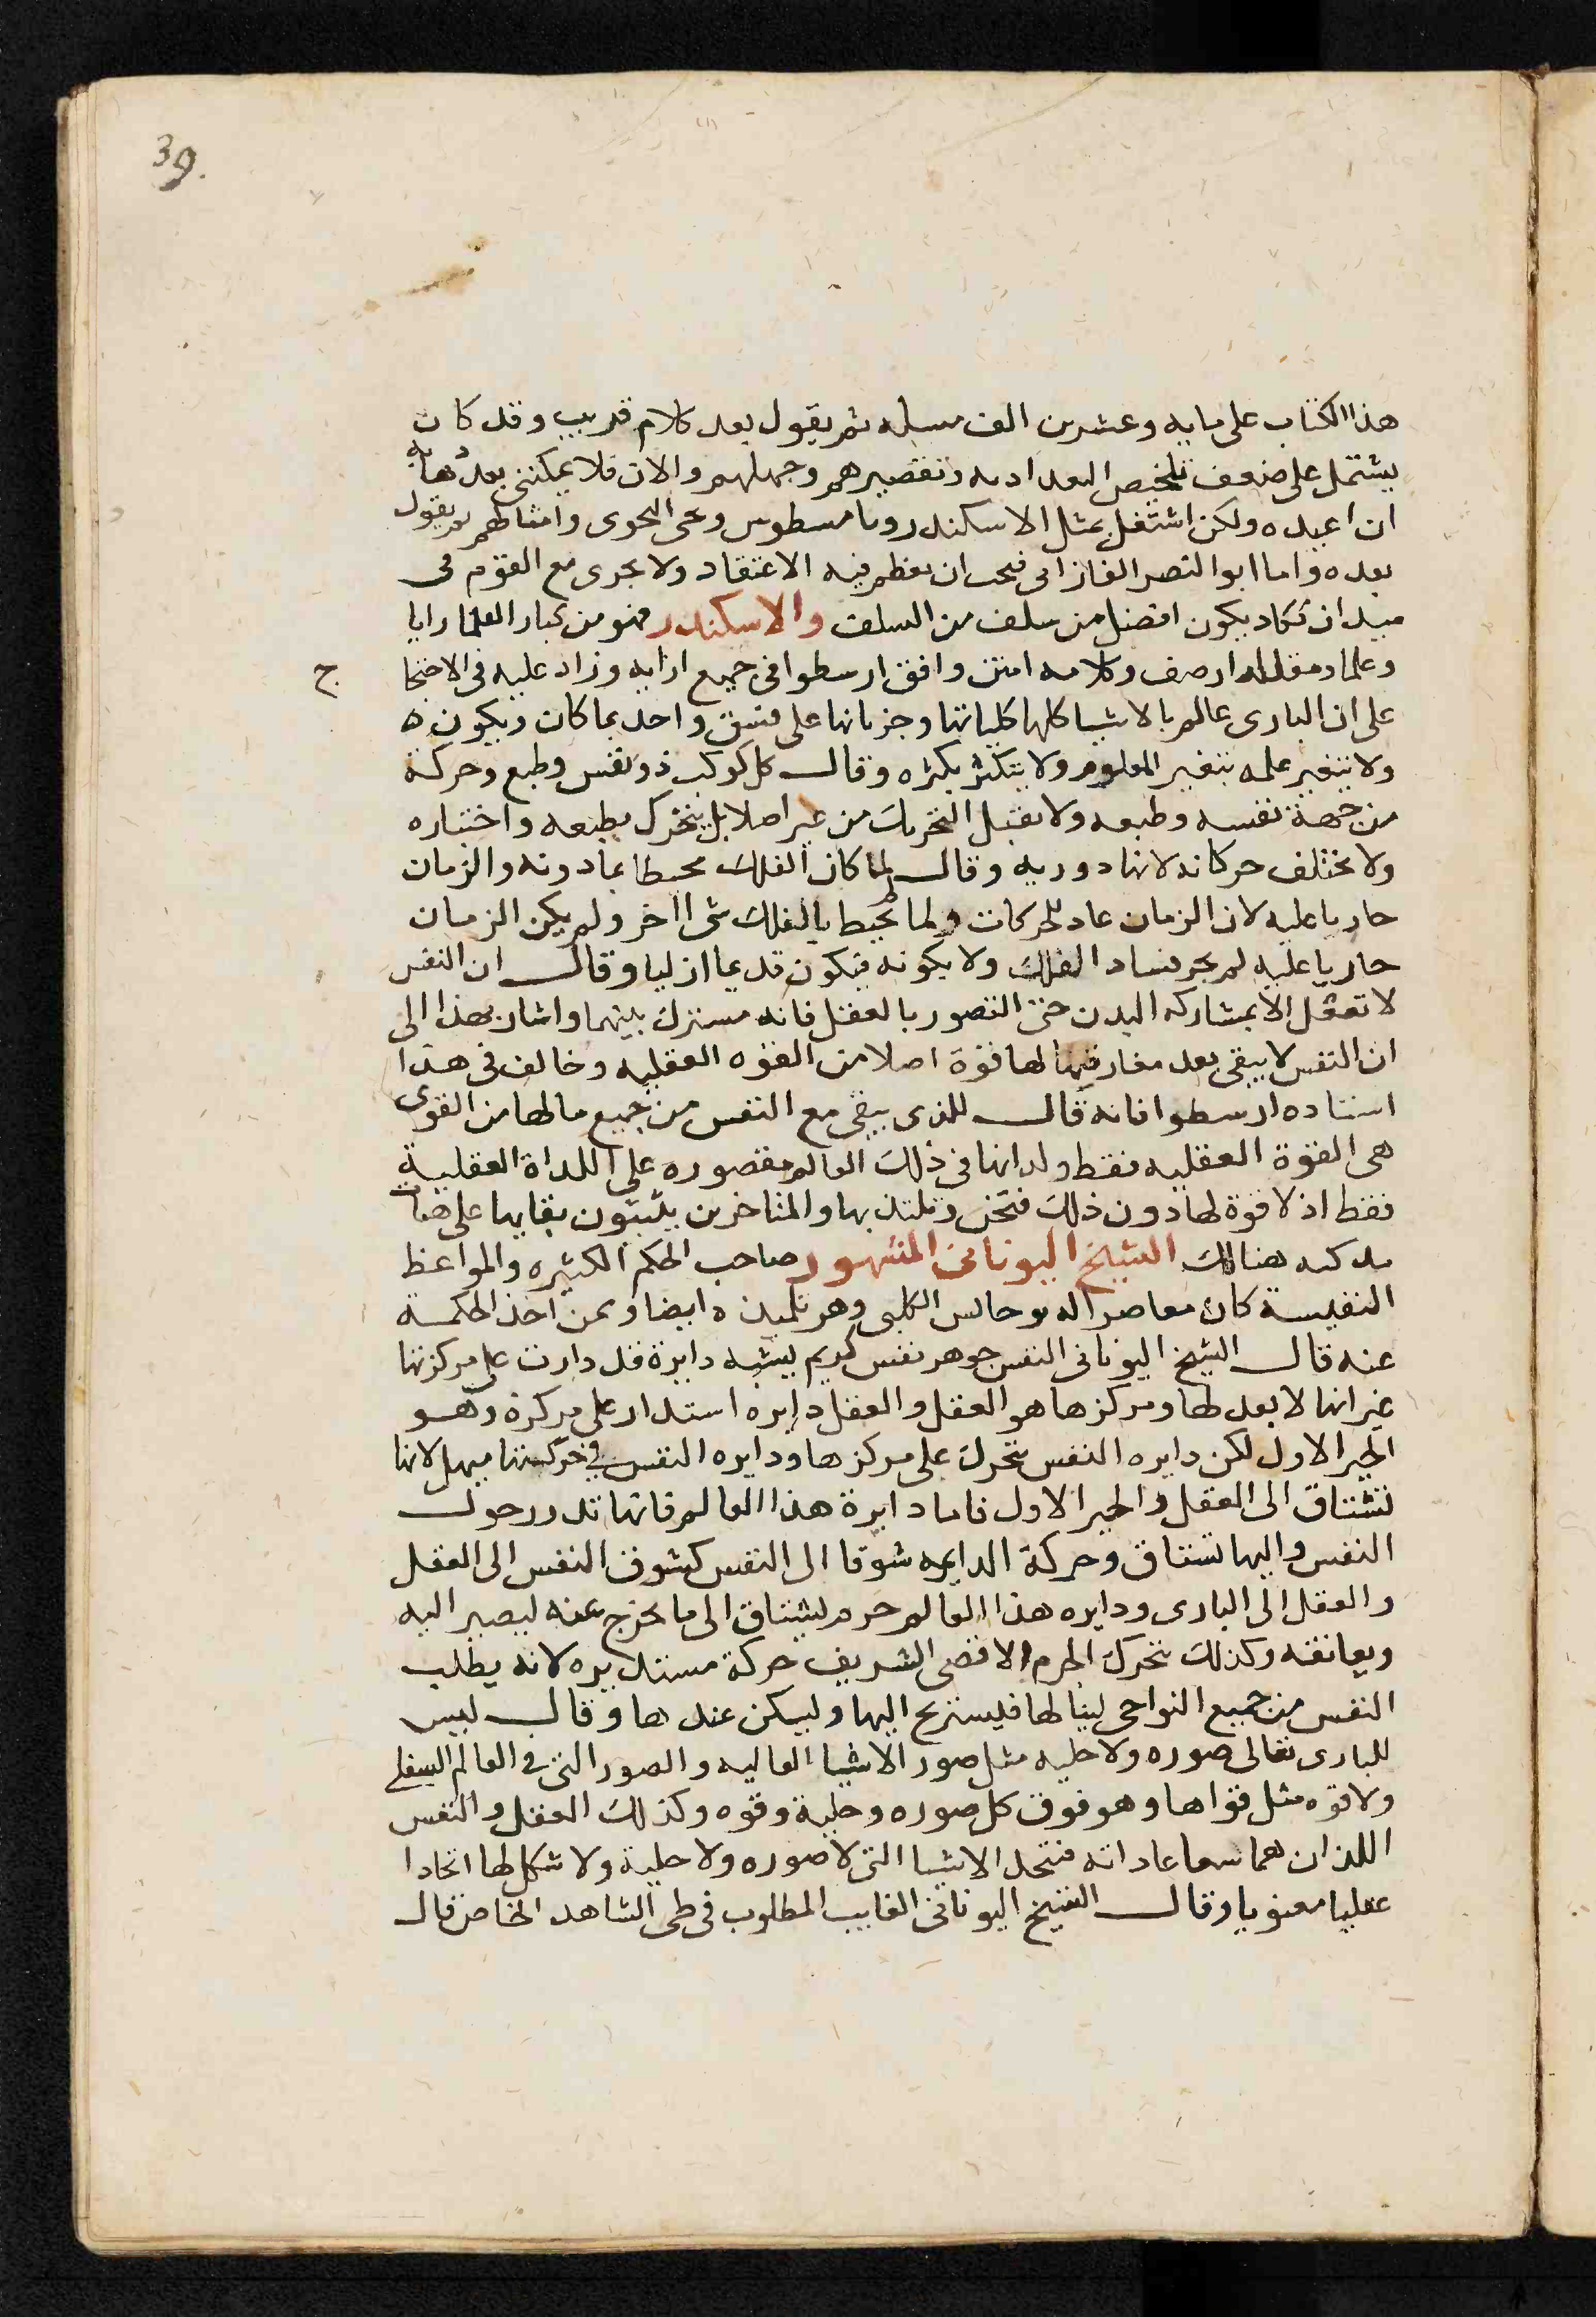 39.
هذا الكتاب على مايه وعشرين الف مسله ثم يقول بعد كلام قريب وقد كان
يشتمل على ضعف تلخيص البغداديه وتقصيرهم وجهلهم والان فلا يمكننى بعد
ان اعيده ولكن اشتغل بمثل الاسكندر وثامسطوس ويحى النحوى وامثالهم ثم يقول
بعده واما ابو النصر الفارابى فيجب ان يعظم فيه الاعتقاد ولا يجرى مع القوم فى
ميدان فكاد يكون افضل من سلف من السلف والاسكندر فهو من كبار العلما رايا
وعلما ومقاله ارصف وكلامه امتن وافق ارسطوا فى جميع ارايه وزاد عليه فى الاحتجا
ج
على ان البارى عالم بالاشيا كلها كلياتها وجزياتها على نسق واحد بما كان وبكون ه
ولا يتغير علمه بتغير المعلوم ولا يتكثر بكثره وقال كل كوكب ذو نفس وطبع وحركة
من جهة نفسه وطبعه ولا يقبل التحريك من غير اصلا بل يتحرك بطبعه واختياره
ولا يختلف حركاته لانها دوريه وقال لما كان الفلك محيطا بما دونه والزمان
جاريا عليه لان الزمان عاد للحركات ولما لم يحيط بالفلك شى ااخر ولم يكن الزمان
جاريا عليه لم يجر فساد الفلك ولا بكونه فيكون قديما ازليا وقال ان النفس
لا تعقل الا بمشاركه البدن حتى التصور بالعقل فانه مشترك بينهما واشار بهذا الى
ان النفس لا يبقى بعد مفارقتها لها قوة اصلا من القوه العقليه وخالف فى هذا
استاده ارسطوا فانه قال للذى يبقى مع النفس من جميع ما لها من القوى
هى القوة العقليه فقط ولداتها فى ذلك العالم مقصوره على اللداة العقلية
فقط اذ لا قوة لها دون ذلك فتحس وتلتذ بها والمتاخرين يثبتون بقايها على
هنالك الشيخ اليونانى المشهور صاحب الحكم الكثيره والمواعظ
النفيسة كان معاصرا له الكلبى وهو تلميذه ايضا وممن اخذ الحكمة
عنه قال الشيخ اليونانى النفس جوهر نفس كريم يشبه دايرة قد دارت على مركزتها
غير انها لا بعد لها ومركزها هو العقل والعقل دايره استدار على مركزه وهو
الخير الاول لكن دايره النفس يتحرك على مركزها ودايره النفس فى حركتها ميل لانها
تشتاق الى العقل والخير الاول فاما دايرة هذا العالم فانها تدور حول
النفس واليها تشتاق وحركة الدايمه شوقا الى النفس كشوق النفس الى العقل
والعقل الى البارى ودايره هذا العالم جرم يشتاق الى ما يخرج عنه ليصير اليه
ويعانقه وكذلك تحرك الجرم الاقصى الشريف حركة مستديره لانه يطلب
النفس من جميع النواحى لينالها فيستريح اليها وليسكن عندها وقال ليس
للبارى تعالى صوره ولا حليه مثل صور الاشيا العاليه والصور التى فى العالم السفلى
ولا قوه مثل قواها وهو فوق كل صوره وحلية وقوه وكذلك العقل والنفس
اللذان هما فتحد الاشيا التى لا صوره ولا حلية ولا شكل لها اتحادا
عقليا معنويا وقال الشيخ اليونانى الغايب المطلوب فى طى الشاهد الحاضر قال